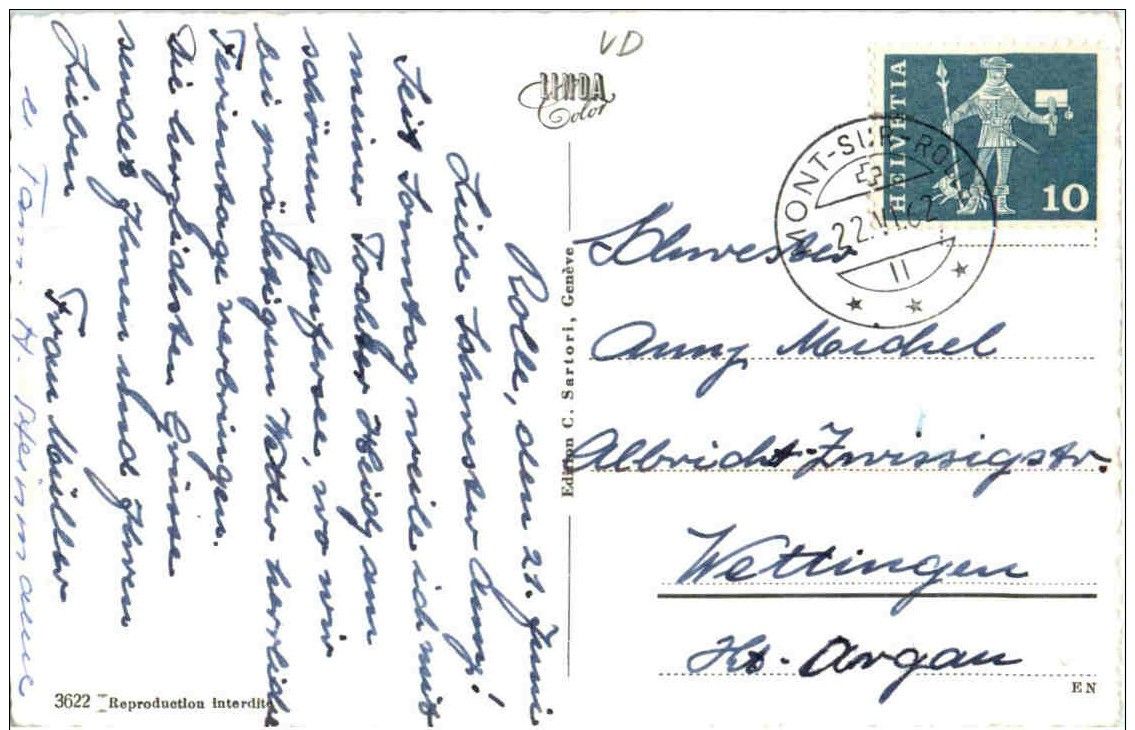 VD
LINDA
Color
HELVETIA
10
MONT-SUR-ROLLE
22.VI.62
11
Rolle, den 21. Juni
Liebe Schwester Anny!
Seit Sonntag weile ich mit
meiner Tochter Heidy am
schönen Genfersee, wo wir
bei prächtigem Wetter herrliche
Ferientage verbringen.
Die herzlichsten Grüsse
sendet Ihnen und Ihren
Lieben Frau Müller
Schwester
Anny Michel
Albricht-Zwissigstr.
Wettingen
Kt. Argau
Edition C. Sartori, Genève
3622 Reproduction interdite
EN